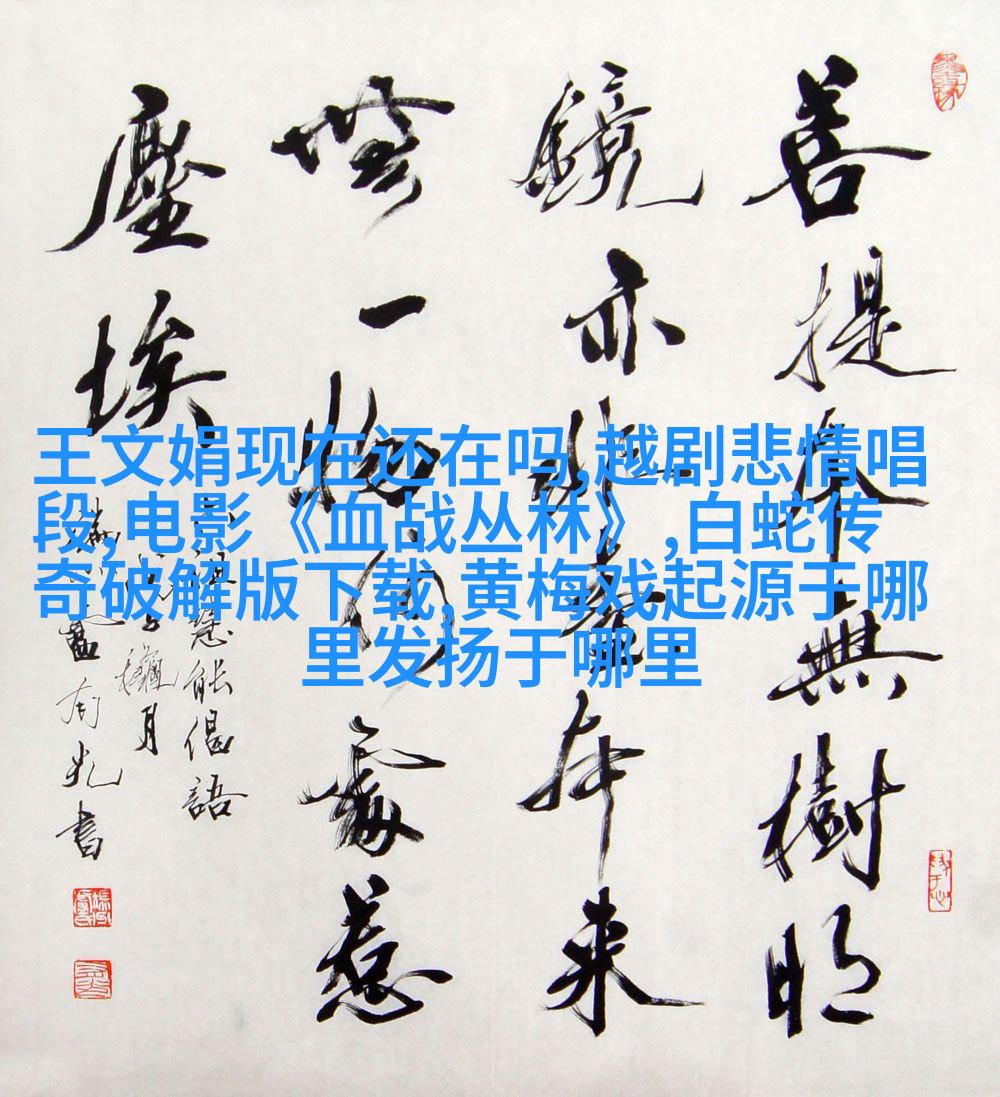 王文娟现在还在吗,越剧悲情唱
段,电影《血战丛林》,白蛇传
奇破解版下载,黄梅戏起源于哪
里发扬于哪里
菩提本無樹明
鏡亦非臺本来
無一物何處惹
塵埃
慧能偈語
月
書